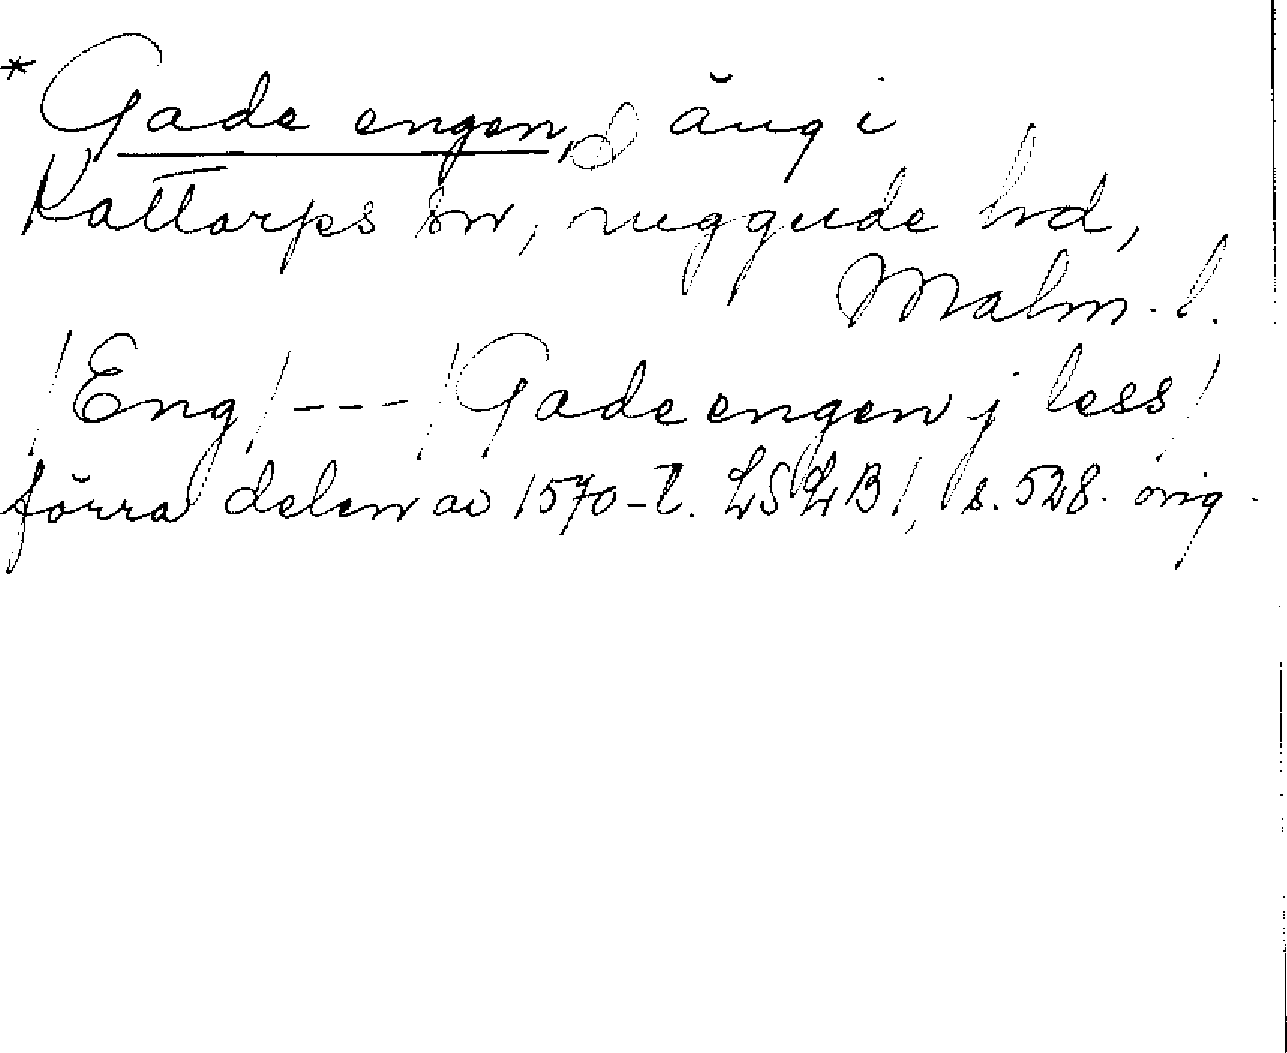 *Gade engen, äng i
Kattorps sn, Luggude hd,
Malm. l.
/Eng/ --- /Gade engen j less/
förra delen av 1570-t. LSLB1, s. 528. orig.